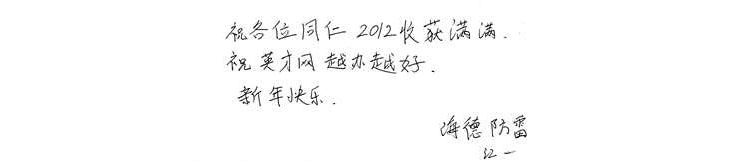 祝各位同仁 2012收获满满.
祝英才网越办越好.
新年快乐.
海德防雷
江一